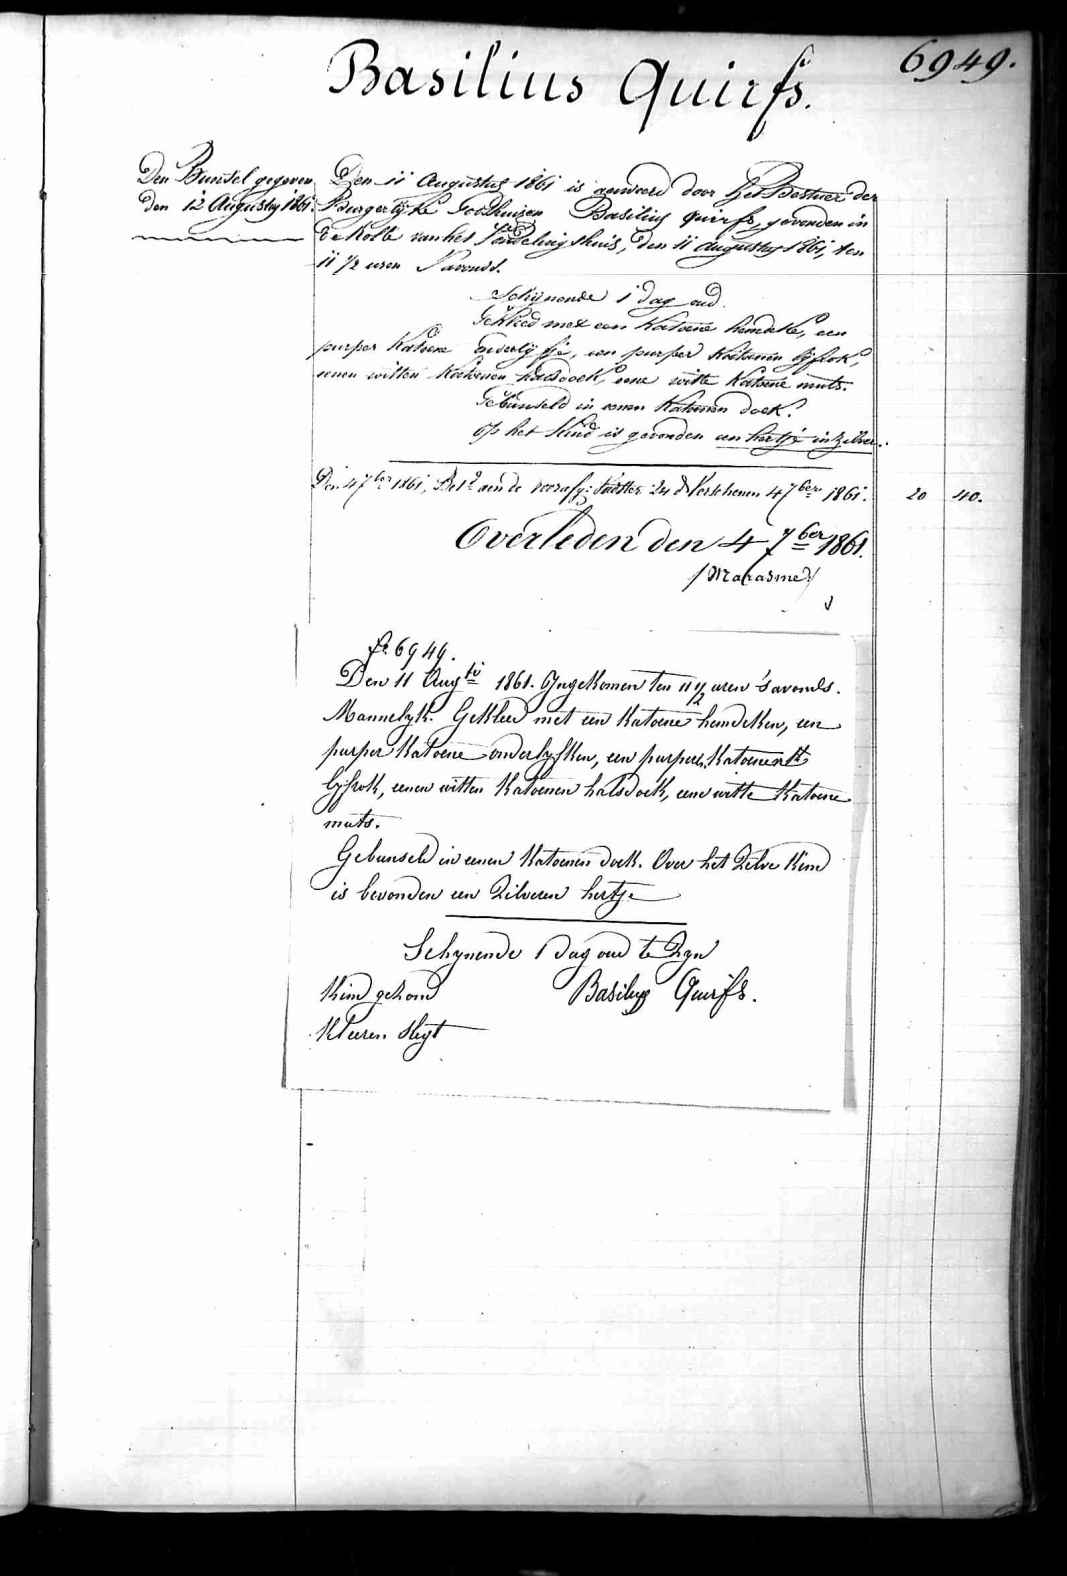 6949.
Basilius Quirfs.
Den Bunsel gegeven
den 12 Augustus 1861.
Den 11 Augustus 1861 is aenveerd door het Bestuer der
Burgerlijke Godshuizen Basilius Quirfs, gevonden in
de Rolle van het Vondelingshuis, den 11 augustus 1861, ten
11 1/2 uren 's avonds.
Schijnende 1 dag oud.
Gekleed met een katoene hemdeke, een
purper katoene onderlijfje, een purper katoenen lijfrok,
eenen witten katoenen halsdoek, eene witte katoene muts.
Gebunseld in eenen katoenen doek.
Op het kind is gevonden een hertje in zilver.
Den 4 7ber 1861, Bet.d aen de voorsg: 24 d. Verschenen 4 7ber 1861. 20 40.
Overleden den 4 7ber 1861.
/Marasme/
No. 6949.
Den 11 Aug.ti 1861. Ingekomen ten 11 1/2 uren 's avonds.
Mannelyk. Gekleed met een katoene hemdeken, een
purper katoene onderlyfken, een purper katoenen
lyfrok, eenen witten katoenen halsdoek, eene witte katoene
muts.
Gebunseld in eenen katoenen doek. Over het zelve kind
is bevonden een zilveren hertje
Schynende 1 dag oud te zyn
Kind gezond Basilius Quirfs.
Kleeren slegt